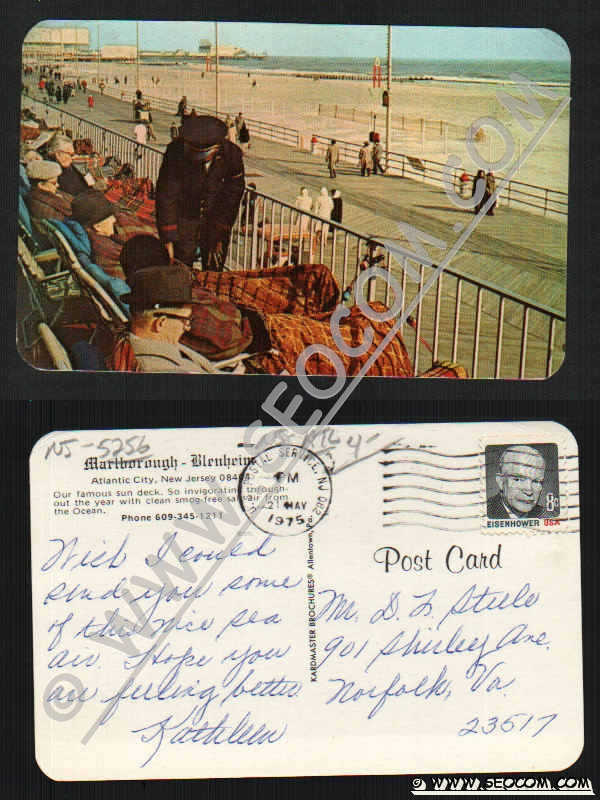 © WWW.SEOCOM.COM
NJ-5256
Marlborough - Blenheim
Atlantic City, New Jersey 08404
Our famous sun deck. So invigorating through-
out the year with clean smog-free salt air from
the Ocean.
Phone 609-345-1211
POSTAL SERVICE, NJ
PM
21 MAY
1975
8c
EISENHOWER USA
Post Card
KARDMASTER BROCHURES® Allentown, Pa.
Wish I could
send you some
of this nice sea
air. Hope you
are feeling better.
Kathleen
Mr. D. L. Steele
901 Shirley Ave.
Norfolk, Va.
23517
© WWW.SEOCOM.COM
© WWW.SEOCOM.COM